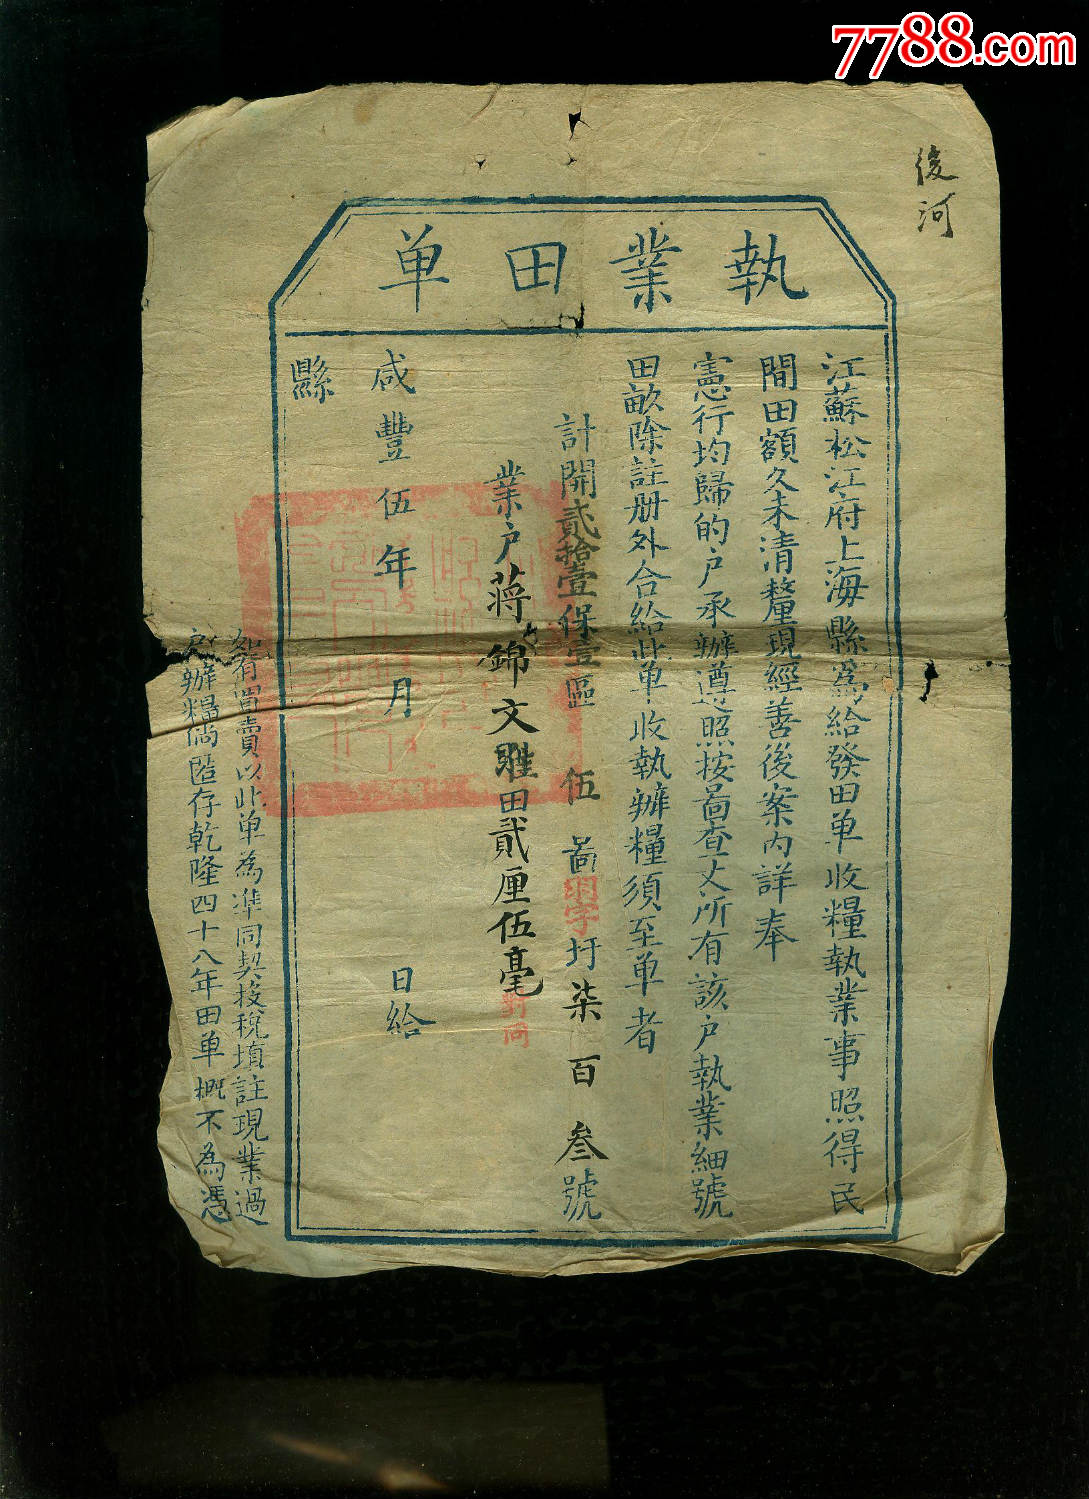 7788.com
後河
執業田单
江蘇松江府上海縣爲給發田单收糧執業事照得民
間田額久未清釐現經善後案内詳奉
憲行均歸的户承辦遵照按啚查丈所有該户執業細號
田畝除註册外合給此单收執辦糧須至单者
計開貳拾壹保壹區 伍 啚羽字圩柒百叁號
業户蔣錦文 田貳厘伍毫對同
咸豐伍年 月 日給
縣
如有買賣以此单為準同契投稅填註現業過
户辦糧倘匿存乾隆四十八年田单概不為憑